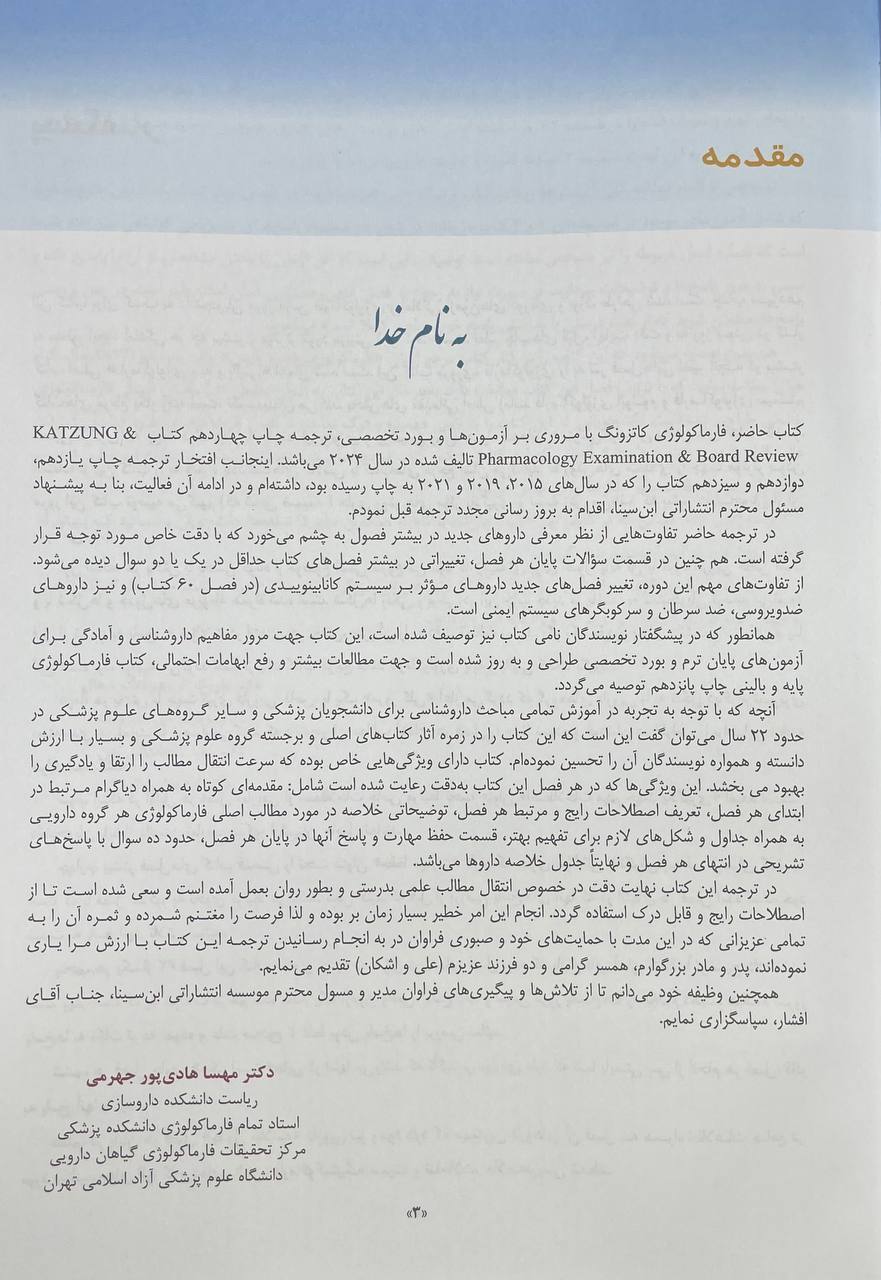 مقدمه
به نام خدا
کتاب حاضر، فارماکولوژی کاتزونگ با مروری بر آزمون‌ها و بورد تخصصی، ترجمه چاپ چهاردهم کتاب KATZUNG &
Pharmacology Examination & Board Review تالیف شده در سال ۲۰۲۴ می‌باشد. اینجانب افتخار ترجمه چاپ یازدهم،
دوازدهم و سیزدهم کتاب را که در سال‌های ۲۰۱۵، ۲۰۱۹ و ۲۰۲۱ به چاپ رسیده بود، داشته‌ام و در ادامه آن فعالیت، بنا به پیشنهاد
مسئول محترم انتشاراتی ابن‌سینا، اقدام به بروز رسانی مجدد ترجمه قبل نمودم.
در ترجمه حاضر تفاوت‌هایی از نظر معرفی داروهای جدید در بیشتر فصول به چشم می‌خورد که با دقت خاص مورد توجه قرار
گرفته است. هم چنین در قسمت سؤالات پایان هر فصل، تغییراتی در بیشتر فصل‌های کتاب حداقل در یک یا دو سوال دیده می‌شود.
از تفاوت‌های مهم این دوره، تغییر فصل‌های جدید داروهای مؤثر بر سیستم کانابینوییدی (در فصل ۶۰ کتاب) و نیز داروهای
ضدویروسی، ضد سرطان و سرکوبگرهای سیستم ایمنی است.
همانطور که در پیشگفتار نویسندگان نامی کتاب نیز توصیف شده است، این کتاب جهت مرور مفاهیم داروشناسی و آمادگی برای
آزمون‌های پایان ترم و بورد تخصصی طراحی و به روز شده است و جهت مطالعات بیشتر و رفع ابهامات احتمالی، کتاب فارماکولوژی
پایه و بالینی چاپ پانزدهم توصیه می‌گردد.
آنچه که با توجه به تجربه در آموزش تمامی مباحث داروشناسی برای دانشجویان پزشکی و سایر گروه‌های علوم پزشکی در
حدود ۲۲ سال می‌توان گفت این است که این کتاب را در زمره آثار کتاب‌های اصلی و برجسته گروه علوم پزشکی و بسیار با ارزش
دانسته و همواره نویسندگان آن را تحسین نموده‌ام. کتاب دارای ویژگی‌هایی خاص بوده که سرعت انتقال مطالب را ارتقا و یادگیری را
بهبود می بخشد. این ویژگی‌ها که در هر فصل این کتاب به‌دقت رعایت شده است شامل: مقدمه‌ای کوتاه به همراه دیاگرام مرتبط در
ابتدای هر فصل، تعریف اصطلاحات رایج و مرتبط هر فصل، توضیحاتی خلاصه در مورد مطالب اصلی فارماکولوژی هر گروه دارویی
به همراه جداول و شکل‌های لازم برای تفهیم بهتر، قسمت حفظ مهارت و پاسخ آنها در پایان هر فصل، حدود ده سوال با پاسخ‌های
تشریحی در انتهای هر فصل و نهایتاً جدول خلاصه داروها می‌باشد.
در ترجمه این کتاب نهایت دقت در خصوص انتقال مطالب علمی بدرستی و بطور روان بعمل آمده است و سعی شده است تا از
اصطلاحات رایج و قابل درک استفاده گردد. انجام این امر خطیر بسیار زمان بر بوده و لذا فرصت را مغتنم شمرده و ثمره آن را به
تمامی عزیزانی که در این مدت با حمایت‌های خود و صبوری فراوان در به انجام رسانیدن ترجمه این کتاب با ارزش مرا یاری
نموده‌اند، پدر و مادر بزرگوارم، همسر گرامی و دو فرزند عزیزم (علی و اشکان) تقدیم می‌نمایم.
همچنین وظیفه خود می‌دانم تا از تلاش‌ها و پیگیری‌های فراوان مدیر و مسول محترم موسسه انتشاراتی ابن‌سینا، جناب آقای
افشار، سپاسگزاری نمایم.
دکتر مهسا هادی‌پور جهرمی
ریاست دانشکده داروسازی
استاد تمام فارماکولوژی دانشکده پزشکی
مرکز تحقیقات فارماکولوژی گیاهان دارویی
دانشگاه علوم پزشکی آزاد اسلامی تهران
«۳»